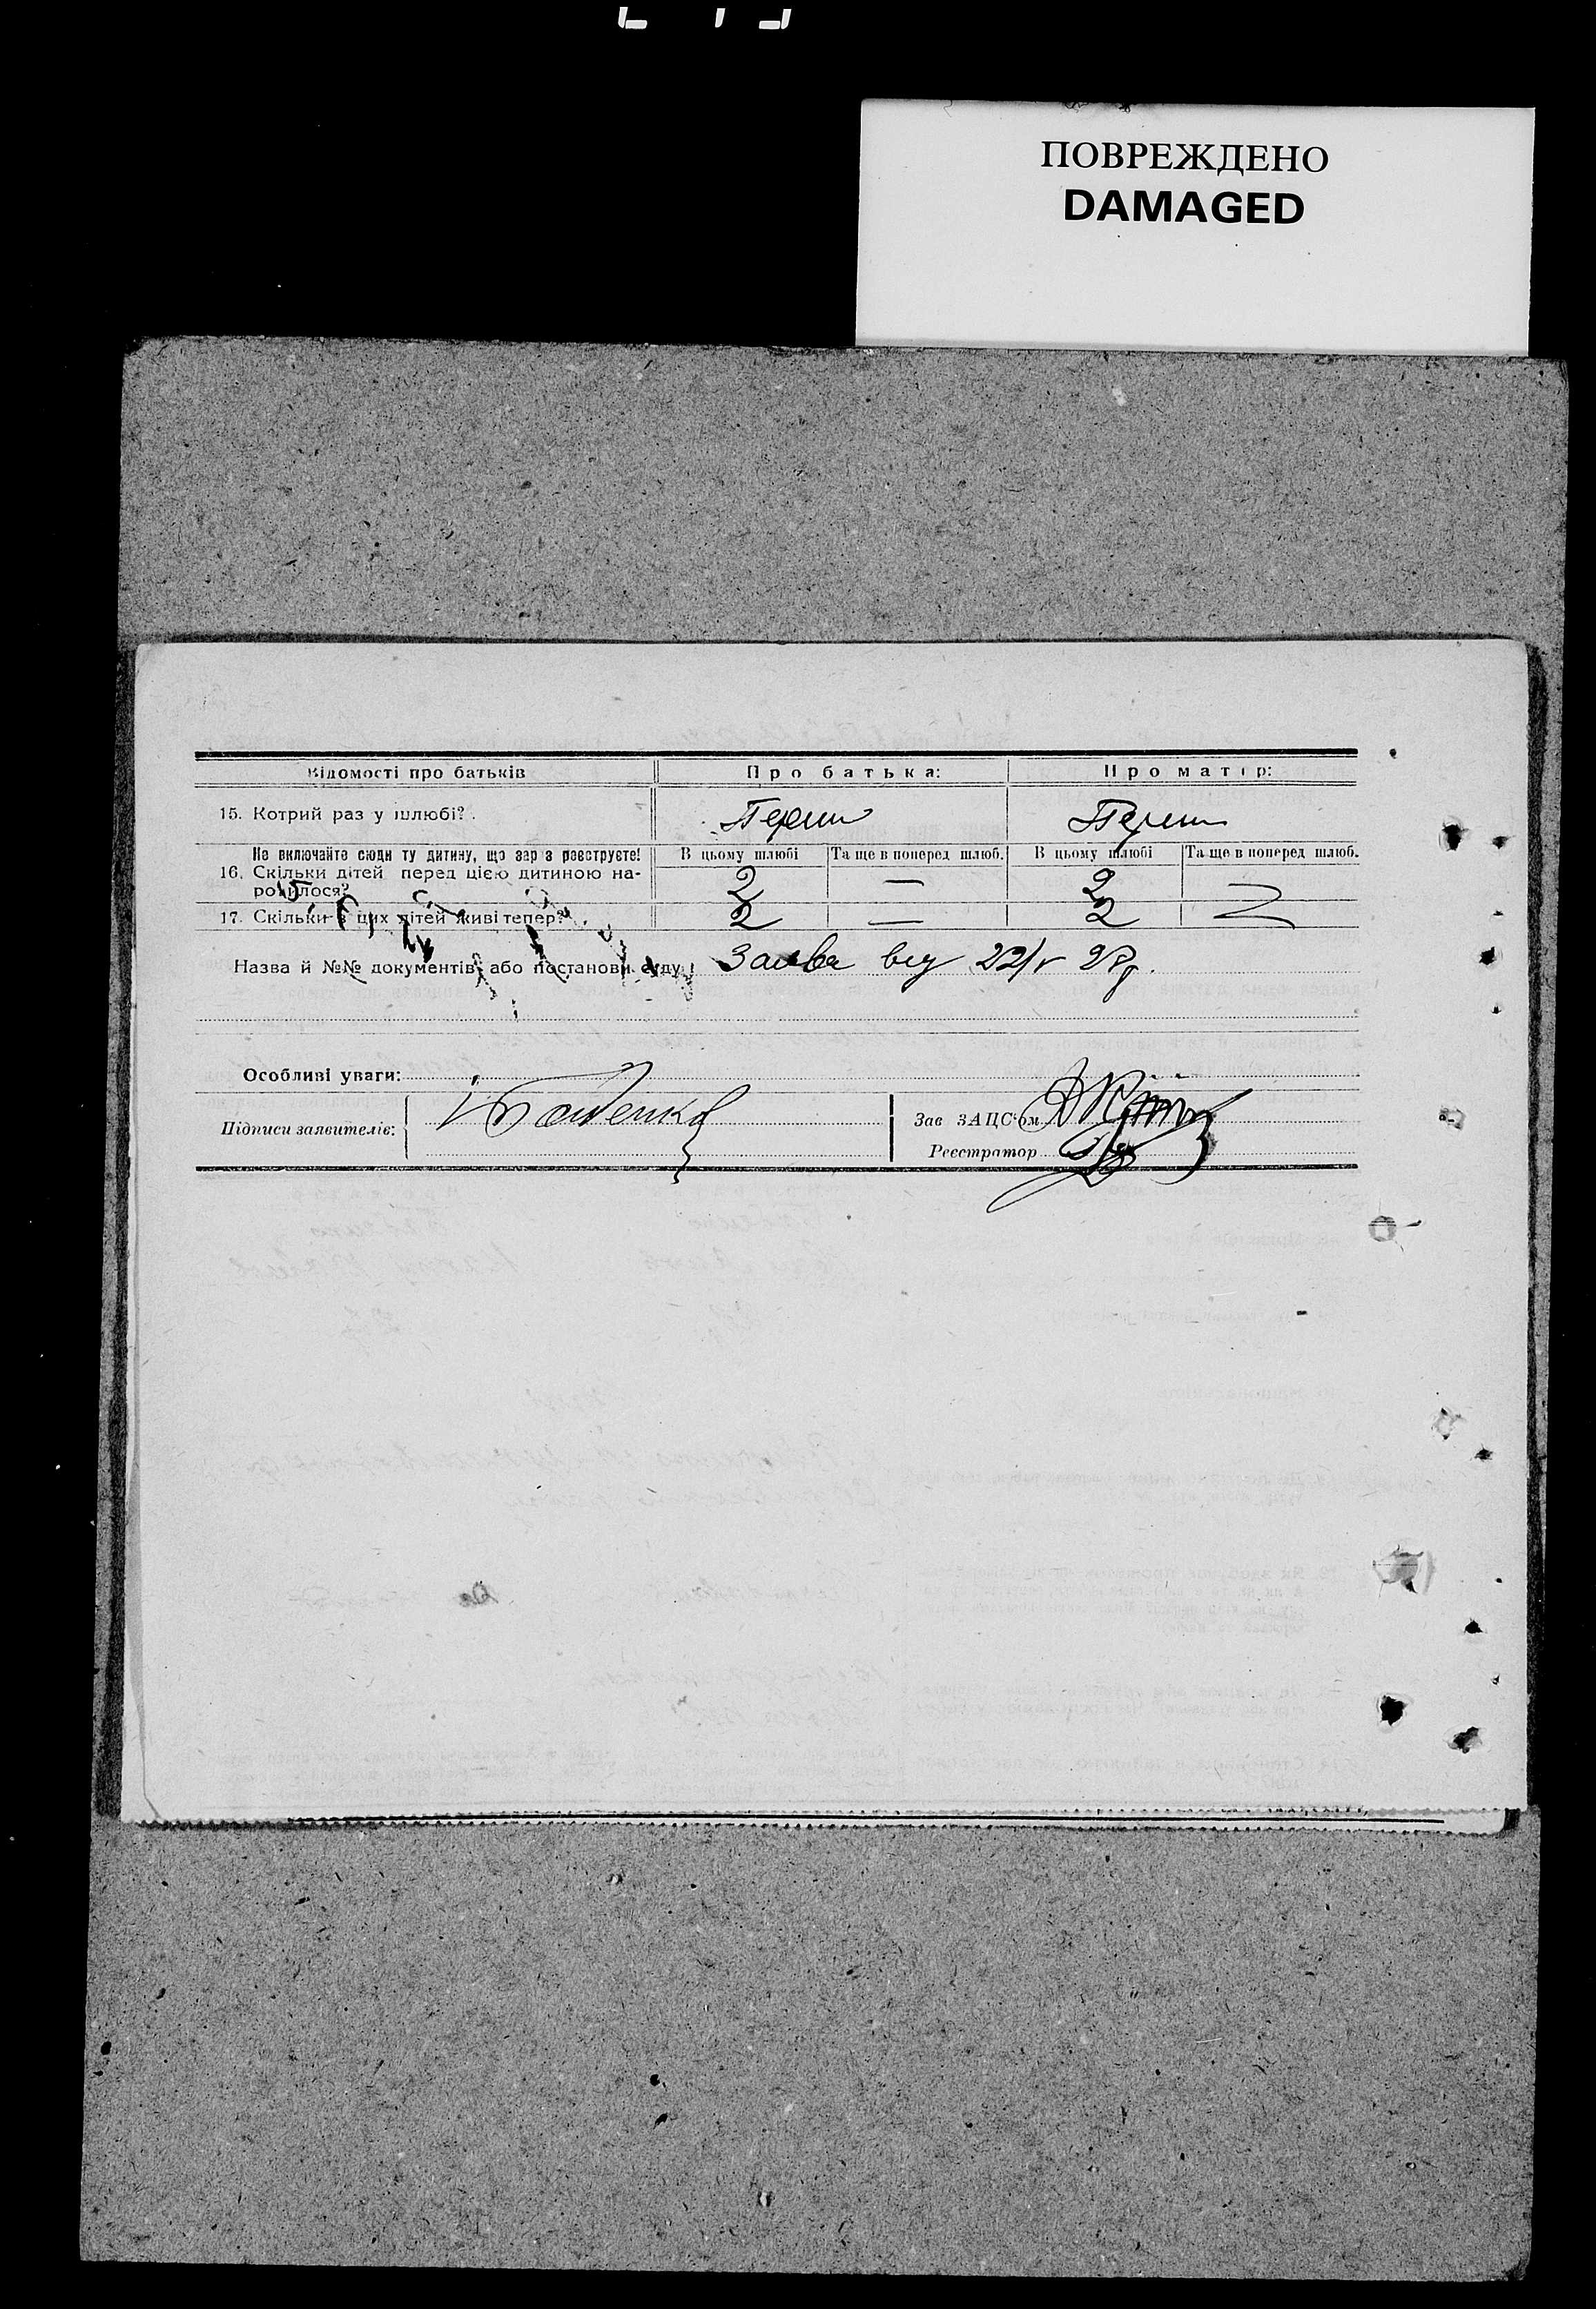 ПОВРЕЖДЕНО
DAMAGED
Відомості про батьків Про батька: Про матір:
15. Котрий раз у шлюбі? Перш Перш
Не включайте сюди ту дитину, що зараз реєструєте!
В цьому шлюбі Та ще в поперед шлюб. В цьому шлюбі Та ще в поперед шлюб.
16. Скільки дітей перед цією дитиною на-
родилося? 2 — 2 —
17. Скільки з цих дітей живі тепер? 2 — 2
Назва й №№ документів, або постанови суду: Заява від 22/V 28р.
Особливі уваги:
Підписи заявителів: Зав ЗАЦС'ом
Реєстратор